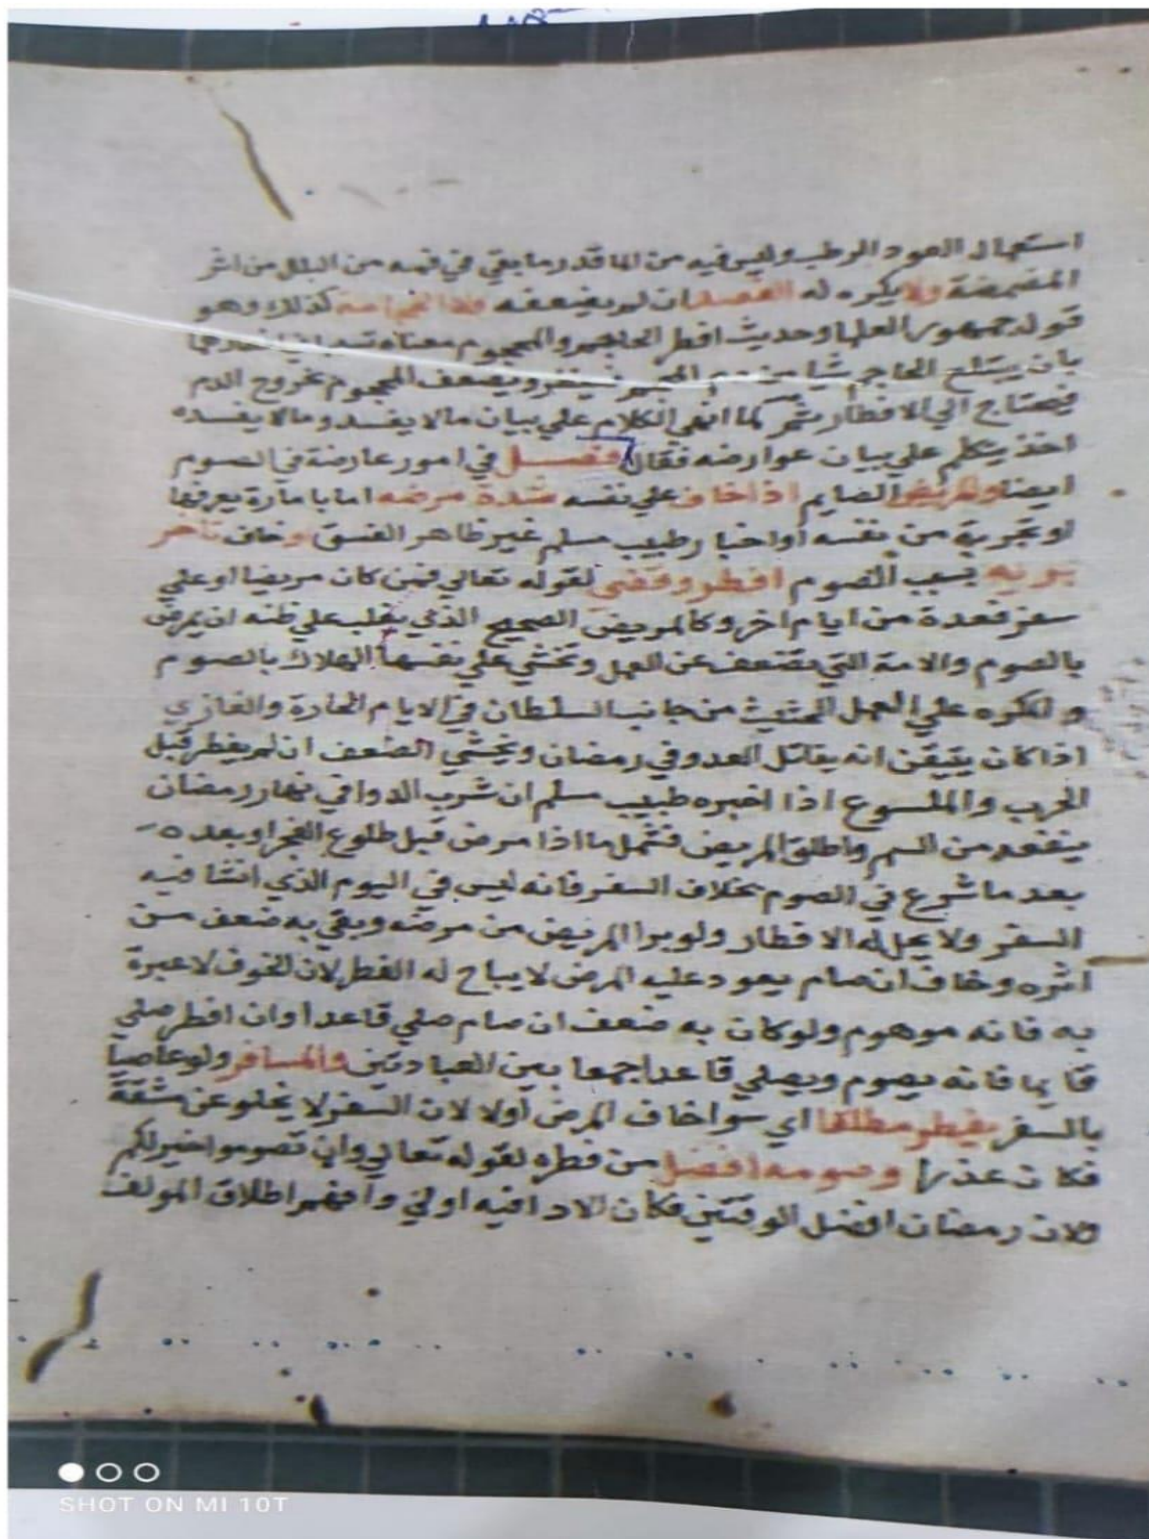 استعمال العود الرطب وليس فيه من الما قدر ما بقي في فمه من البلل من اثر
المضمضة ولا يكره له الفصد ان لم يضعفه وكذا الحجامة كذلك وهو
قول جمهور العلما وحديث افطر الحاجم والمحجوم معناه
بان يبتلع الحاجم شيا من دم ويضعف المحجوم بخروج الدم
فيحتاج الي الافطار ثم لما انهي الكلام علي بيان ما لا يفسد وما لا يفسده
اخذ يتكلم علي بيان عوارضه فقال فصل في امور عارضة في الصوم
ايضا والمريض الصايم اذا خاف علي نفسه شدة مرضه اما بامارة يعرفها
او تجربة من نفسه او اخبار طبيب مسلم غير ظاهر الفسق او خاف تاخر
بريه بسبب الصوم افطر وقضي لقوله تعالي فمن كان مريضا او علي
سفر فعدة من ايام اخر وكالمريض الصحيح الذي يغلب علي ظنه ان يمرض
بالصوم والامة التي تضعف عن العمل وتخشي علي نفسها الهلاك بالصوم
والمكره علي العمل من جانب السلطان في الايام الحارة والغازي
اذا كان يتيقن انه يقاتل العدو في رمضان ويخشي الضعف ان لم يفطر قبل
الحرب والملسوع اذا اخبره طبيب مسلم ان شرب الدوا في نهار رمضان
ينفعه من السم واطلق المريض فشمل ما اذا مرض قبل طلوع الفجر او بعده
بعد ما شرع في الصوم بخلاف السفر فانه ليس في اليوم الذي انشا فيه
السفر ولا يحل له الافطار ولو برا المريض من مرضه وبقي به ضعف من
اثره وخاف ان صام يعود عليه المرض لا يباح له الفطر لان الخوف لا عبرة
به فانه موهوم ولو كان به ضعف ان صام صلي قاعدا وان افطر صلي
قايما فانه يصوم ويصلي قاعدا جمعا بين العبادتين والمسافر ولو عاصيا
بالسفر يفطر مطلقا اي سوا خاف المرض اولا لان السفر لا يخلو عن مشقة
فكان عذرا وصومه افضل من فطره لقوله تعالي وان تصوموا خير لكم
ولان رمضان افضل الوقتين فكان الادا فيه اولي وافهم اطلاق المولف
SHOT ON MI 10T